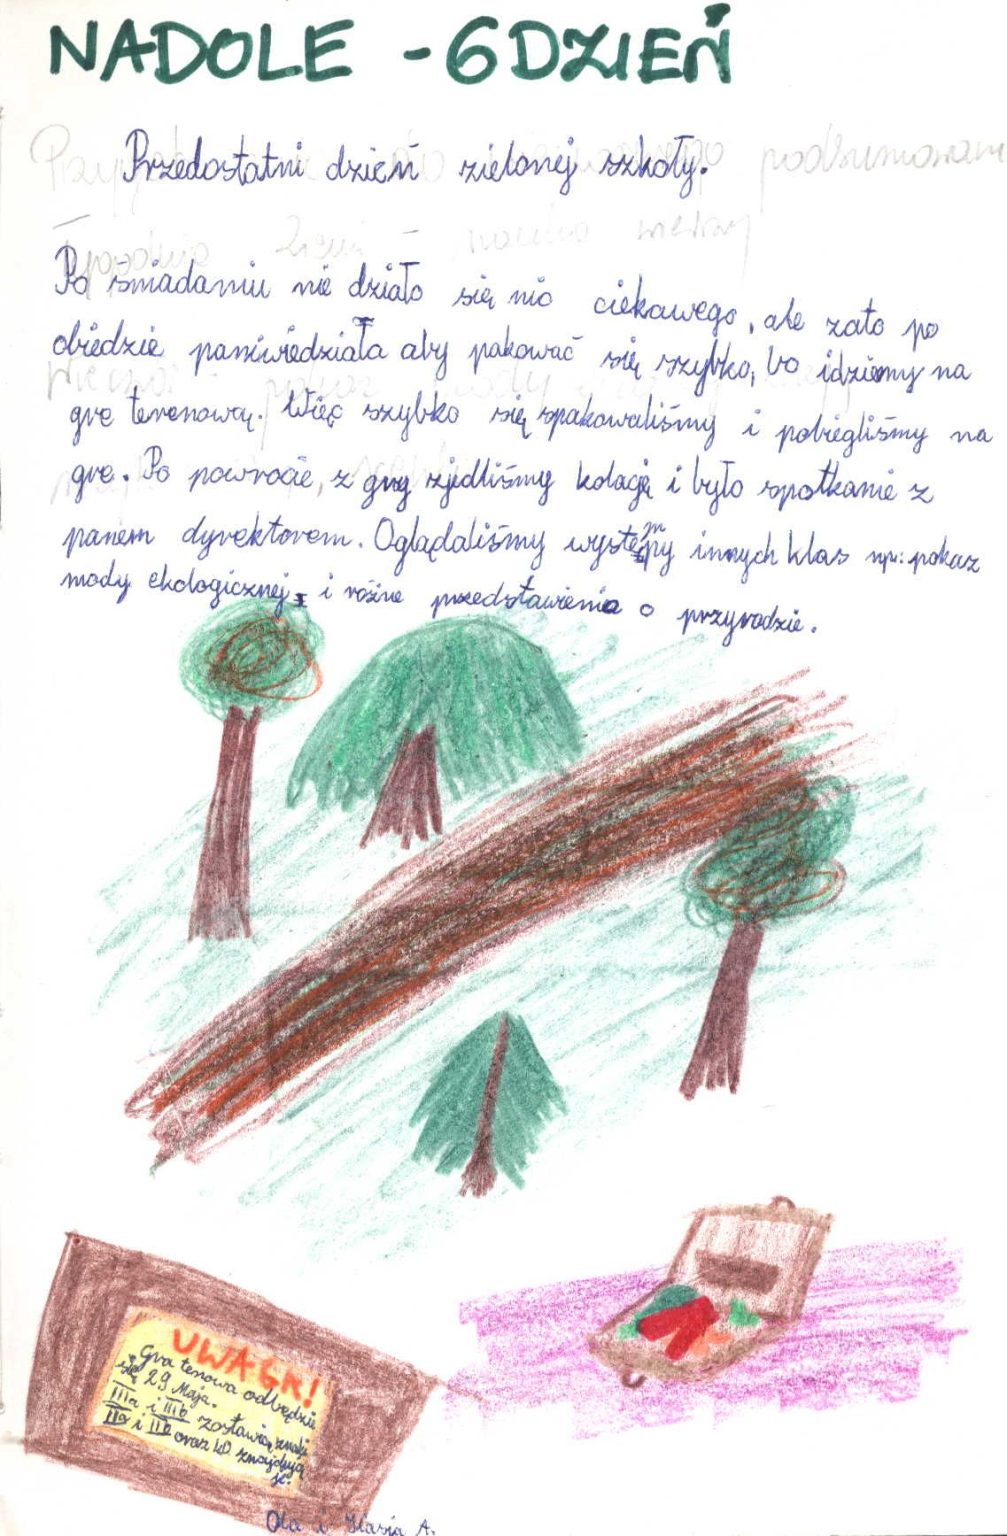 NADOLE - 6 DZIEŃ
Przedostatni dzień zielonej szkoły.
Po śniadaniu nie działo się nic ciekawego, ale zato po
obiedzie paniwiedziała aby pakować się szybko, bo idziemy na
grę terenową. Więc szybko się spakowaliśmy i pobiegliśmy na
grę. Po powrocie, z gry zjedliśmy kolację i było spotkanie z
panem dyrektorem. Oglądaliśmy występy innych klas np: pokaz
mody ekologicznej i różne przedstawienia o przyrodzie.
UWAGA!
Gra tenowa odbędzie
się 29 Maja.
IIIa i IIIb zostawią znaki
IIa i IIb oraz znajdują
je.
Ola i Kasia A.